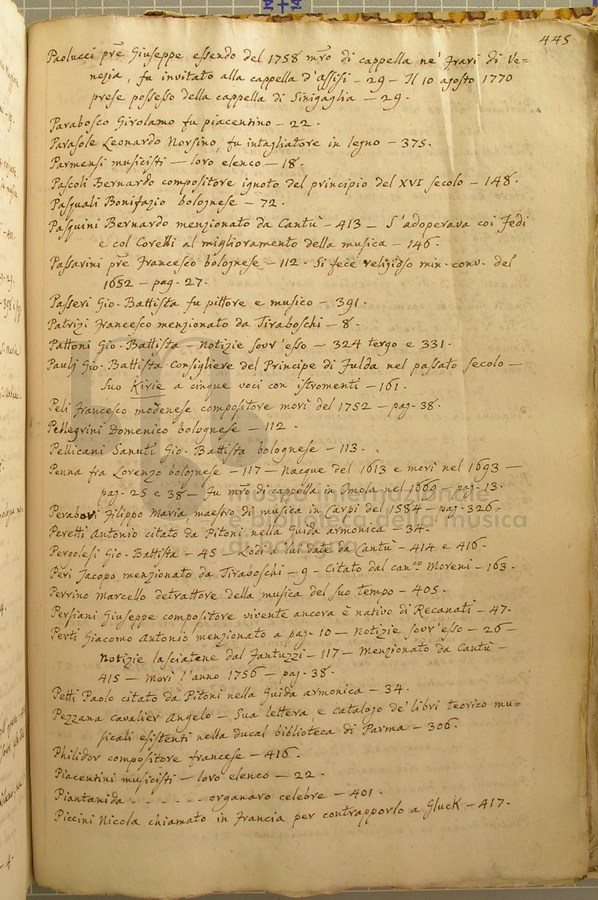 445
Paolucci prē Giuseppe essendo del 1758 mrō di cappella ne' Frari di Ve=
nezia, fu invitato alla cappella d'Assisi - 29 - Il 10 agosto 1770
prese possesso della cappella di Sinigaglia - 29.
Parabosco Girolamo fu piacentino - 22.
Parasole Leonardo Norsino, fu intagliatore in legno - 375.
Parmensi musicisti - loro elenco - 18.
Pascoli Bernardo compositore ignoto del principio del XVI secolo - 148.
Pasquali Bonifazio bolognese - 72.
Pasquini Bernardo menzionato da Cantù - 413 - S'adoperava coi Fedi
e col Corelli al miglioramento della musica - 146.
Passarini prē Francesco bolognese - 112 - Si fece religioso min. conv. del
1652 - pag. 27.
Passeri Gio. Battista fu pittore e musico - 391.
Patrizi Francesco menzionato da Tiraboschi - 8.
Pattoni Gio. Battista - Notizie sovr'esso - 324 tergo e 331.
Paulj Gio. Battista Consigliere del Principe di Fulda nel passato secolo -
Suo Kirie a cinque voci con istromenti - 161.
Peli Francesco modenese compositore morì del 1752 - pag. 38.
Pellegrini Domenico bolognese - 112.
Pellicani Sanuti Gio. Battista bolognese - 113.
Penna fra Lorenzo bolognese - 117 - Nacque del 1613 e morì nel 1693 -
pag. 25 e 38 - Fu mrō di cappella in Imola nel 1669 - pag. 13.
Perabovi Filippo Maria maestro di musica in Carpi del 1584 - pag. 326.
Peretti Antonio citato da Pitoni nella Guida armonica - 34.
Pergolesi Gio. Battista - 45 - Lodi a lui date da Cantù - 414 e 416.
Peri Jacopo menzionato da Tiraboschi - 9 - Citato dal canco Moreni - 163.
Perrino Marcello detrattore della musica del suo tempo - 405.
Persiani Giuseppe compositore vivente ancora è nativo di Recanati - 47.
Perti Giacomo Antonio menzionato a pag. 10 - Notizie sovr'esso - 26 -
Notizie lasciatene dal Fantuzzi - 117 - Menzionato da Cantù -
415 - Morì l'anno 1756 - pag. 38.
Petti Paolo citato da Pitoni nella Guida armonica - 34.
Pezzana cavalier Angelo - Sua lettera, e catalogo de' libri teorico mu=
sicali esistenti nella ducal biblioteca di Parma - 306.
Philidor compositore francese - 416.
Piacentini musicisti - loro elenco - 22.
Piantanida - - - - - organaro celebre - 401.
Piccini Nicola chiamato in Francia per contrapporlo a Gluck - 417.